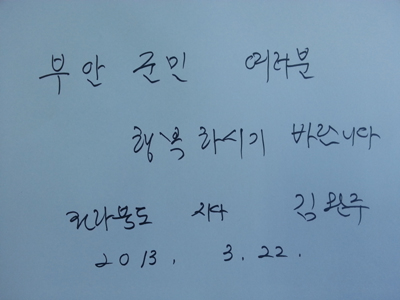 부안 군민 여러분
행복하시기 바랍니다
전라북도 지사 김완주
2013. 3. 22.